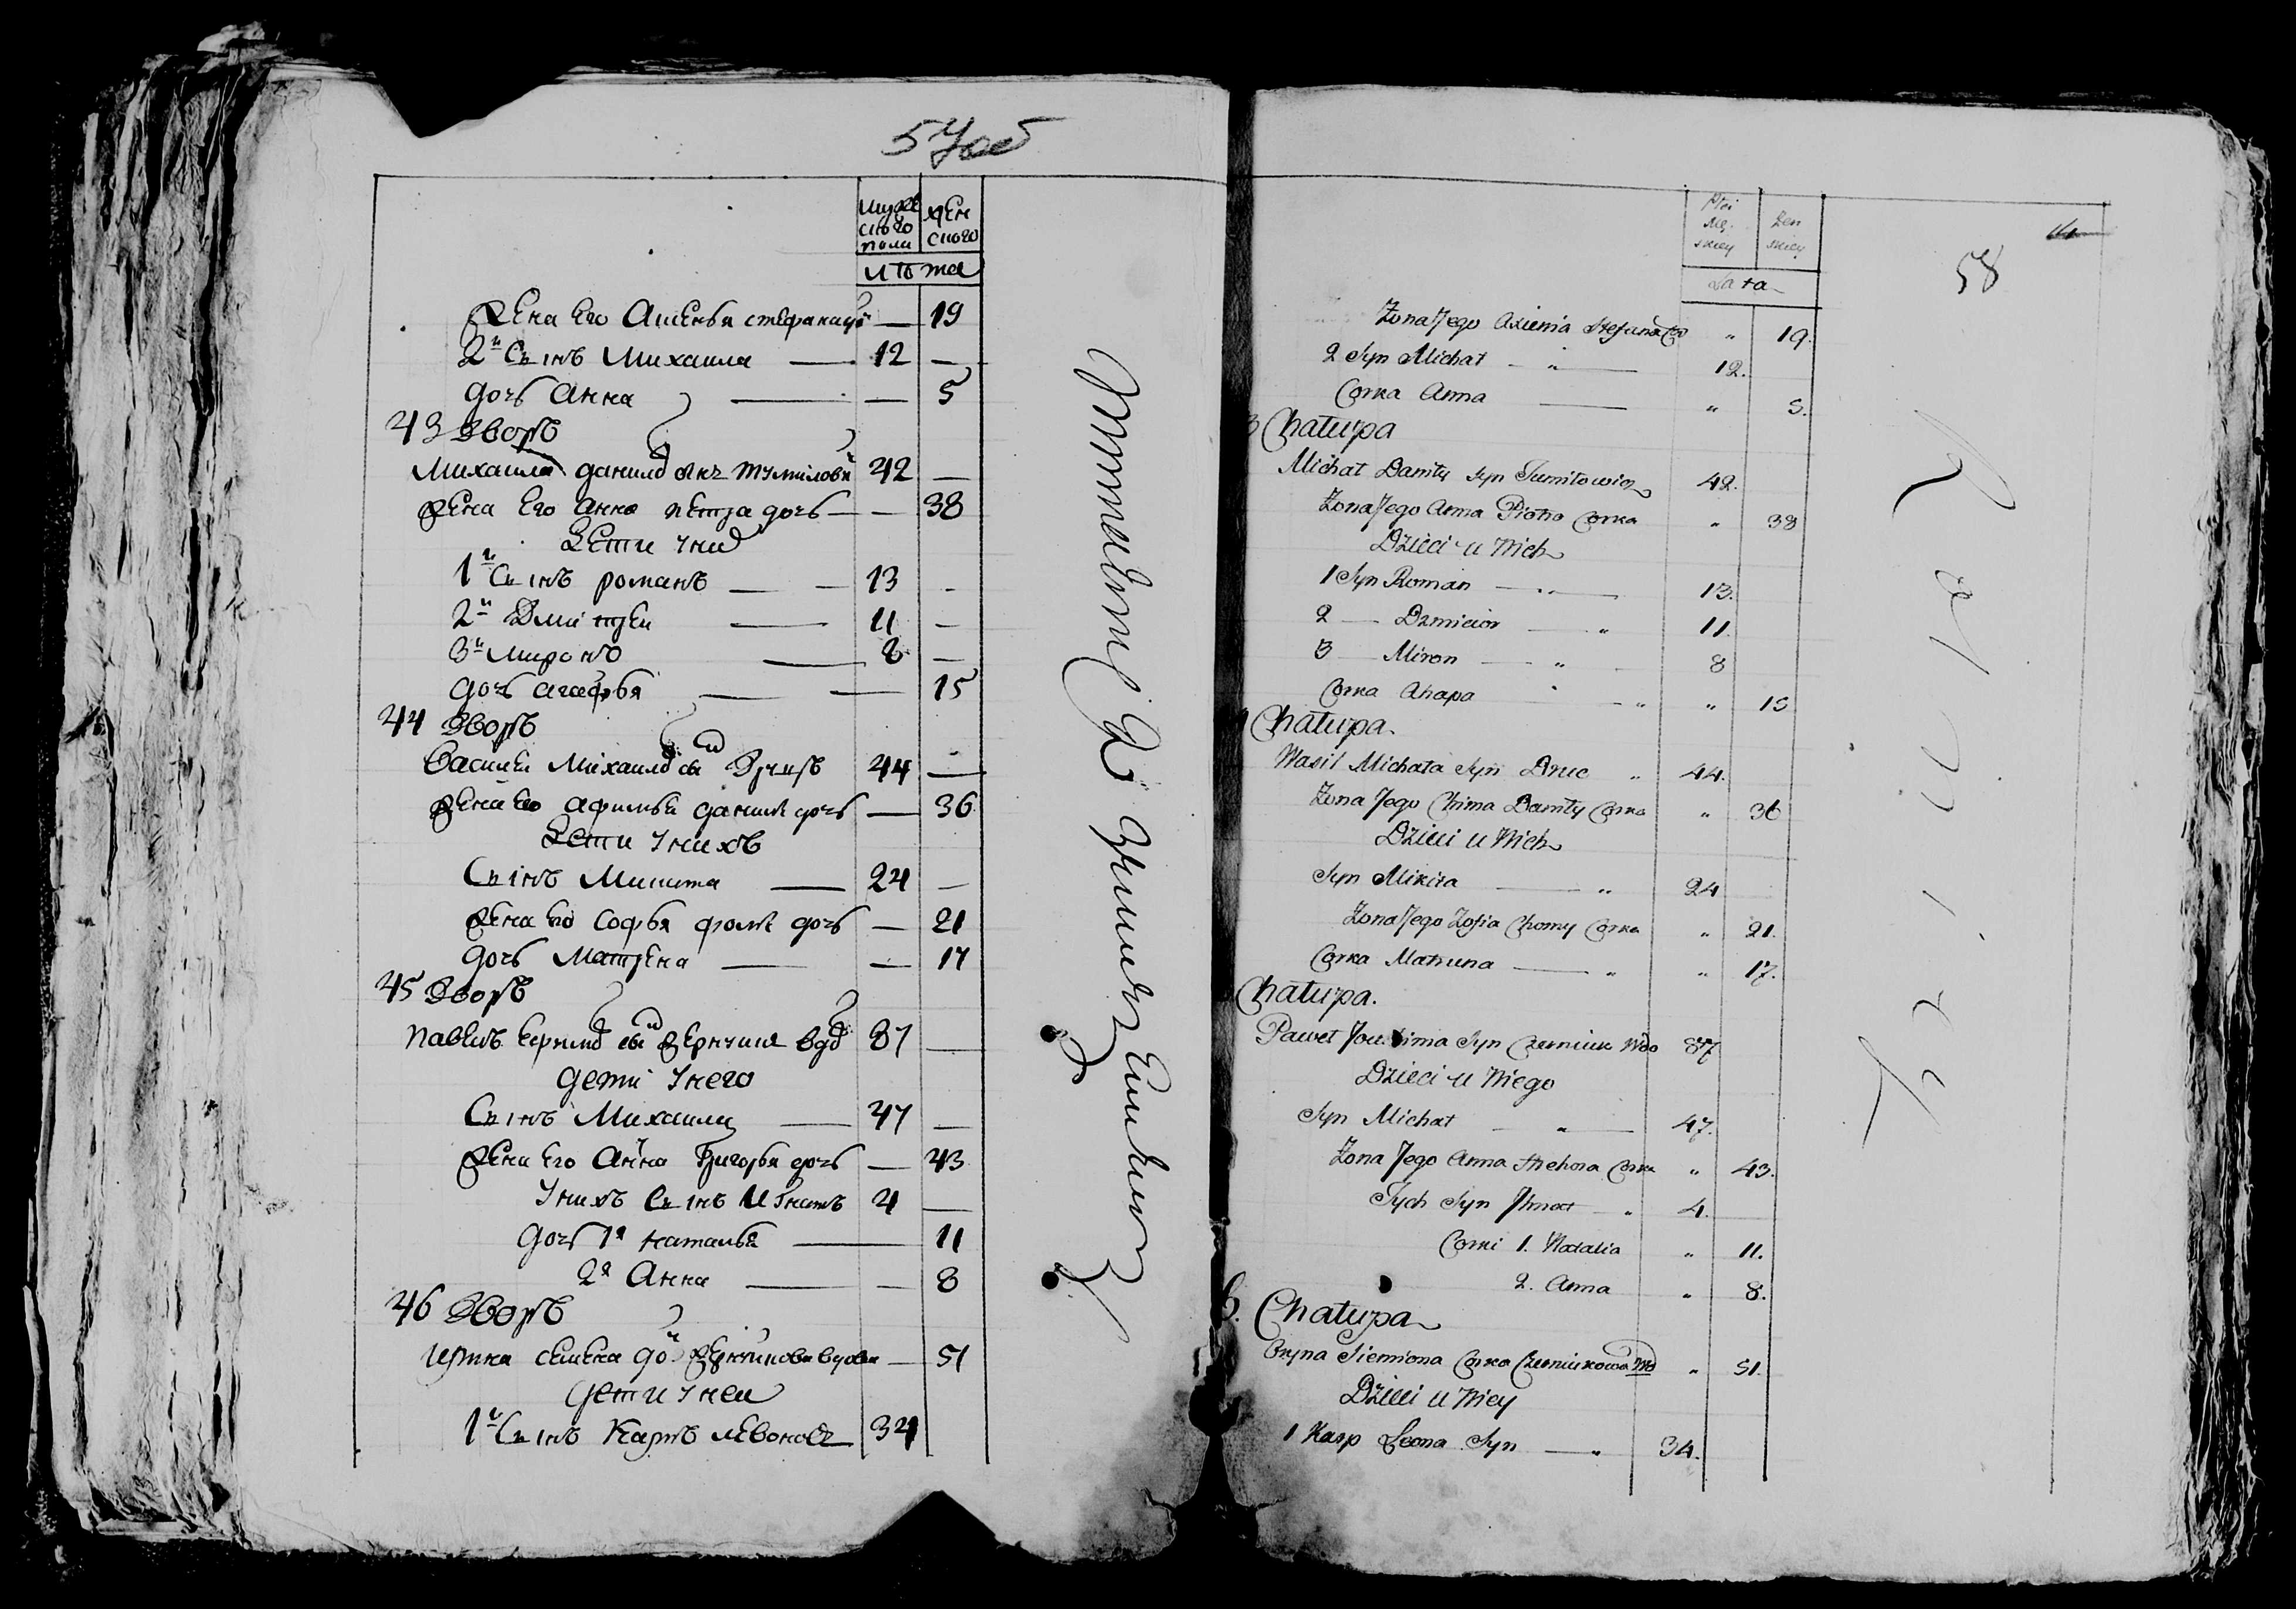 57об
мужескаго полу
женскаго
лѣта
жена его Аксенья стефана до
2й Сынъ Михаила 12
дочь Анна 5
43 Дворъ
Михаила данилы сынъ тумилови 42
жена его анна петра дочь 38
Дети у них
1й Сынъ романъ 13
2й Дмитрей 11
3й миронъ 8
дочь агафья 15
44 Дворъ
Василей Михаила сы Друць 44
жена его афимья данилы дочь 36
Дети у нихъ
Сынъ Микита 24
жена его Софья фомы дочь 21
дочь Матрена 17
45 Дворъ
павелъ сы вдо 87
дети у него
Сынъ Михаила 47
жена его Анна Григорья дочь 43
у нихъ Сынъ Игнатъ 4
дочь 1я наталья 11
2я Анна 8
46 Дворъ
семена до вдова 51
дети у неи
1й Сынъ Карпъ левонов 34
Płci Męskiey
Żenskiey
Lata
58
Żona Jego Axienia Stefana Co " 19.
2 Syn Michał " 12.
Corka Anna " 5.
3 Chałupa
Michał Daniły Syn Tumiłowicz 42.
Żona Jego Anna Piotra Corka " 38
Dzieci u Nich
1 Syn Roman " 13.
2 — Dzmicior " 11.
3 — Miron " 8
Corka Ahapa " " 15
Chałupa.
Wasil Michała Syn Druc " 44.
Żona Jego Chima Daniły Corka " 36
Dzieci u Nich
Syn Mikita " 24
Żona Jego Zofia Chomy Corka " 21.
Corka Matruna " " 17.
Chałupa.
Paweł Syn Czerniuk Wdo 87
Dzieci u Niego
Syn Michał " 47.
Żona Jego Anna Hrehora Corka " 43.
Tych Syn Ihnat " 4.
Corki 1. Natalia " 11.
2. Anna " 8.
6. Chałupa
Oryna Siemiona Corka Czerniukowa Wdo " 51.
Dzieci u Niey
1 Karp Leona Syn " 34.